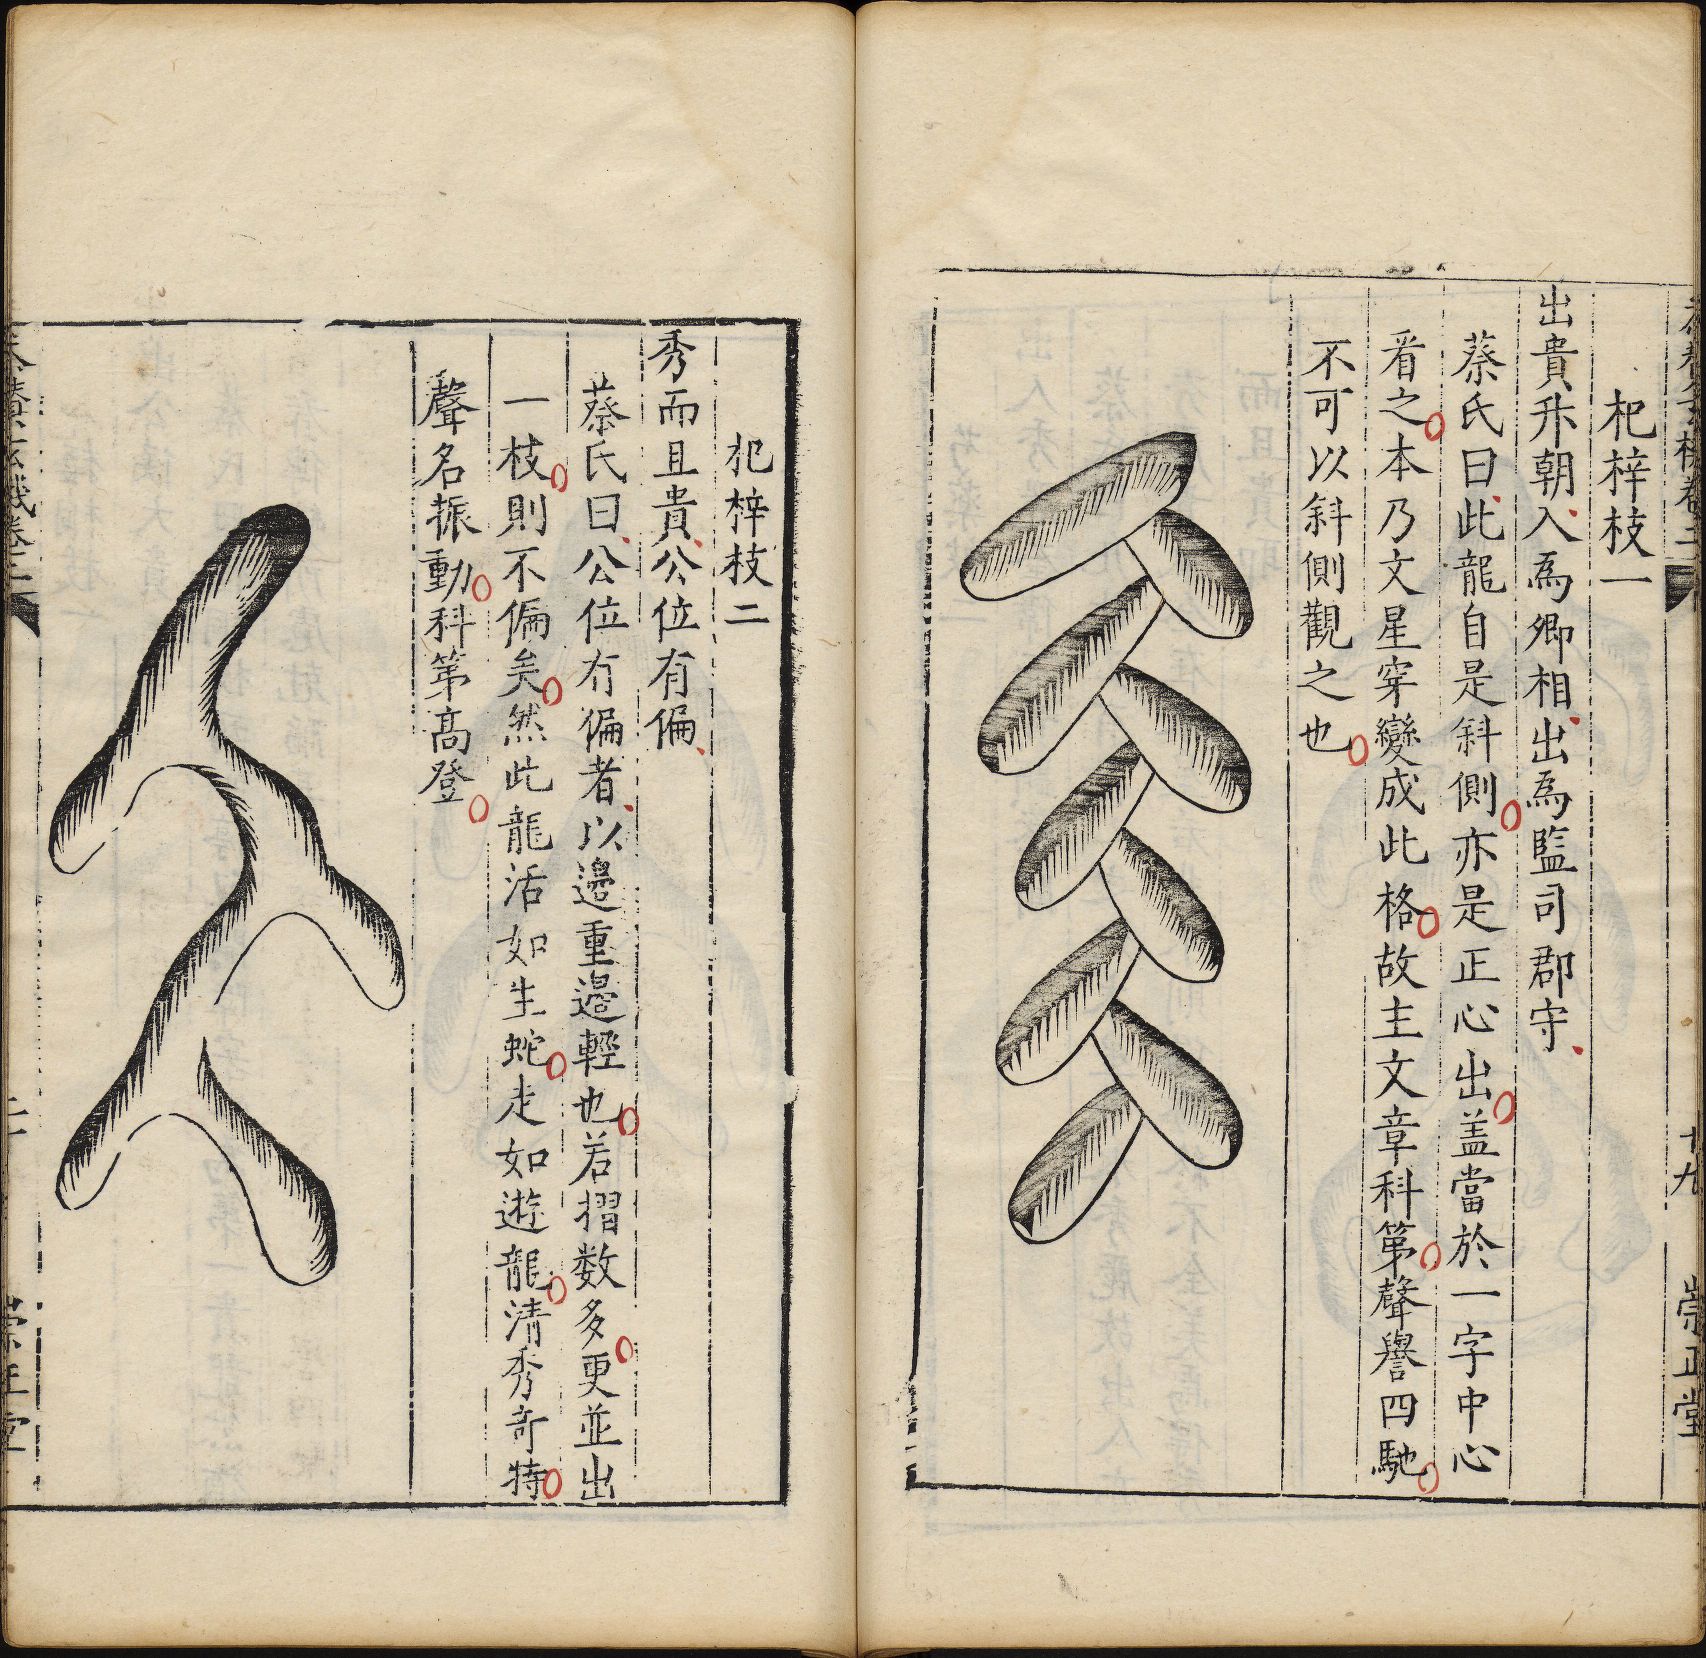 杞梓枝一
出貴升朝入為卿相出為監司郡守
蔡氏曰此龍自是斜側亦是正心出盖當於一字中心
㸔之本乃文星穿變成此格故主文章科第聲譽四馳
不可以斜側觀之也
十九
崇正堂
杞梓枝二
秀而且貴公位有偏
蔡氏曰公位有偏者以邉重邉輕也若摺数多更並出
一枝則不偏矣然此龍活如生蛇走如遊龍清秀竒特
聲名振動科第髙登